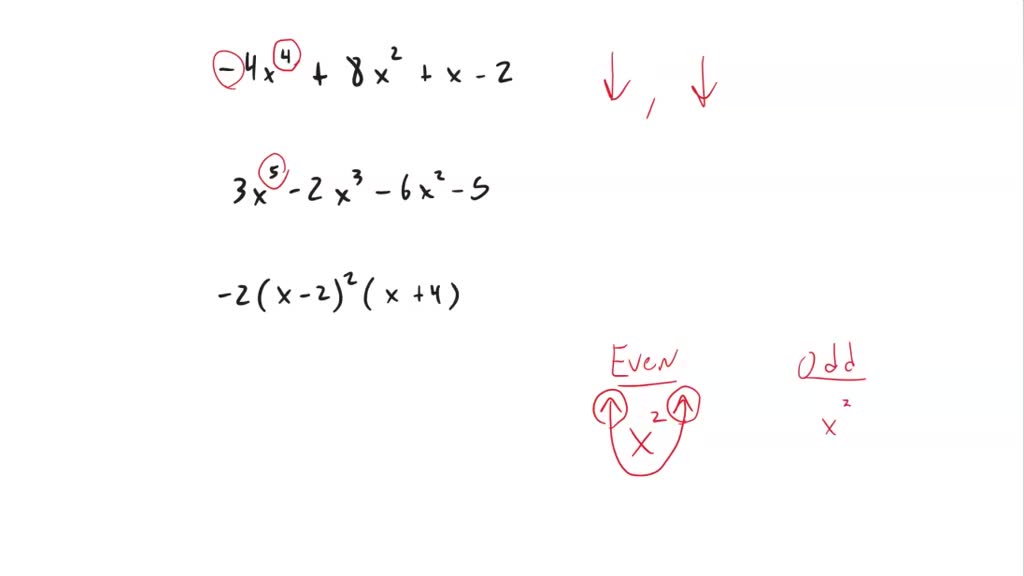 -4x⁴ + 8x² + x - 2 ↓, ↓
3x⁵ - 2x³ - 6x² - 5
-2(x-2)²(x+4)
Even Odd
x² x²